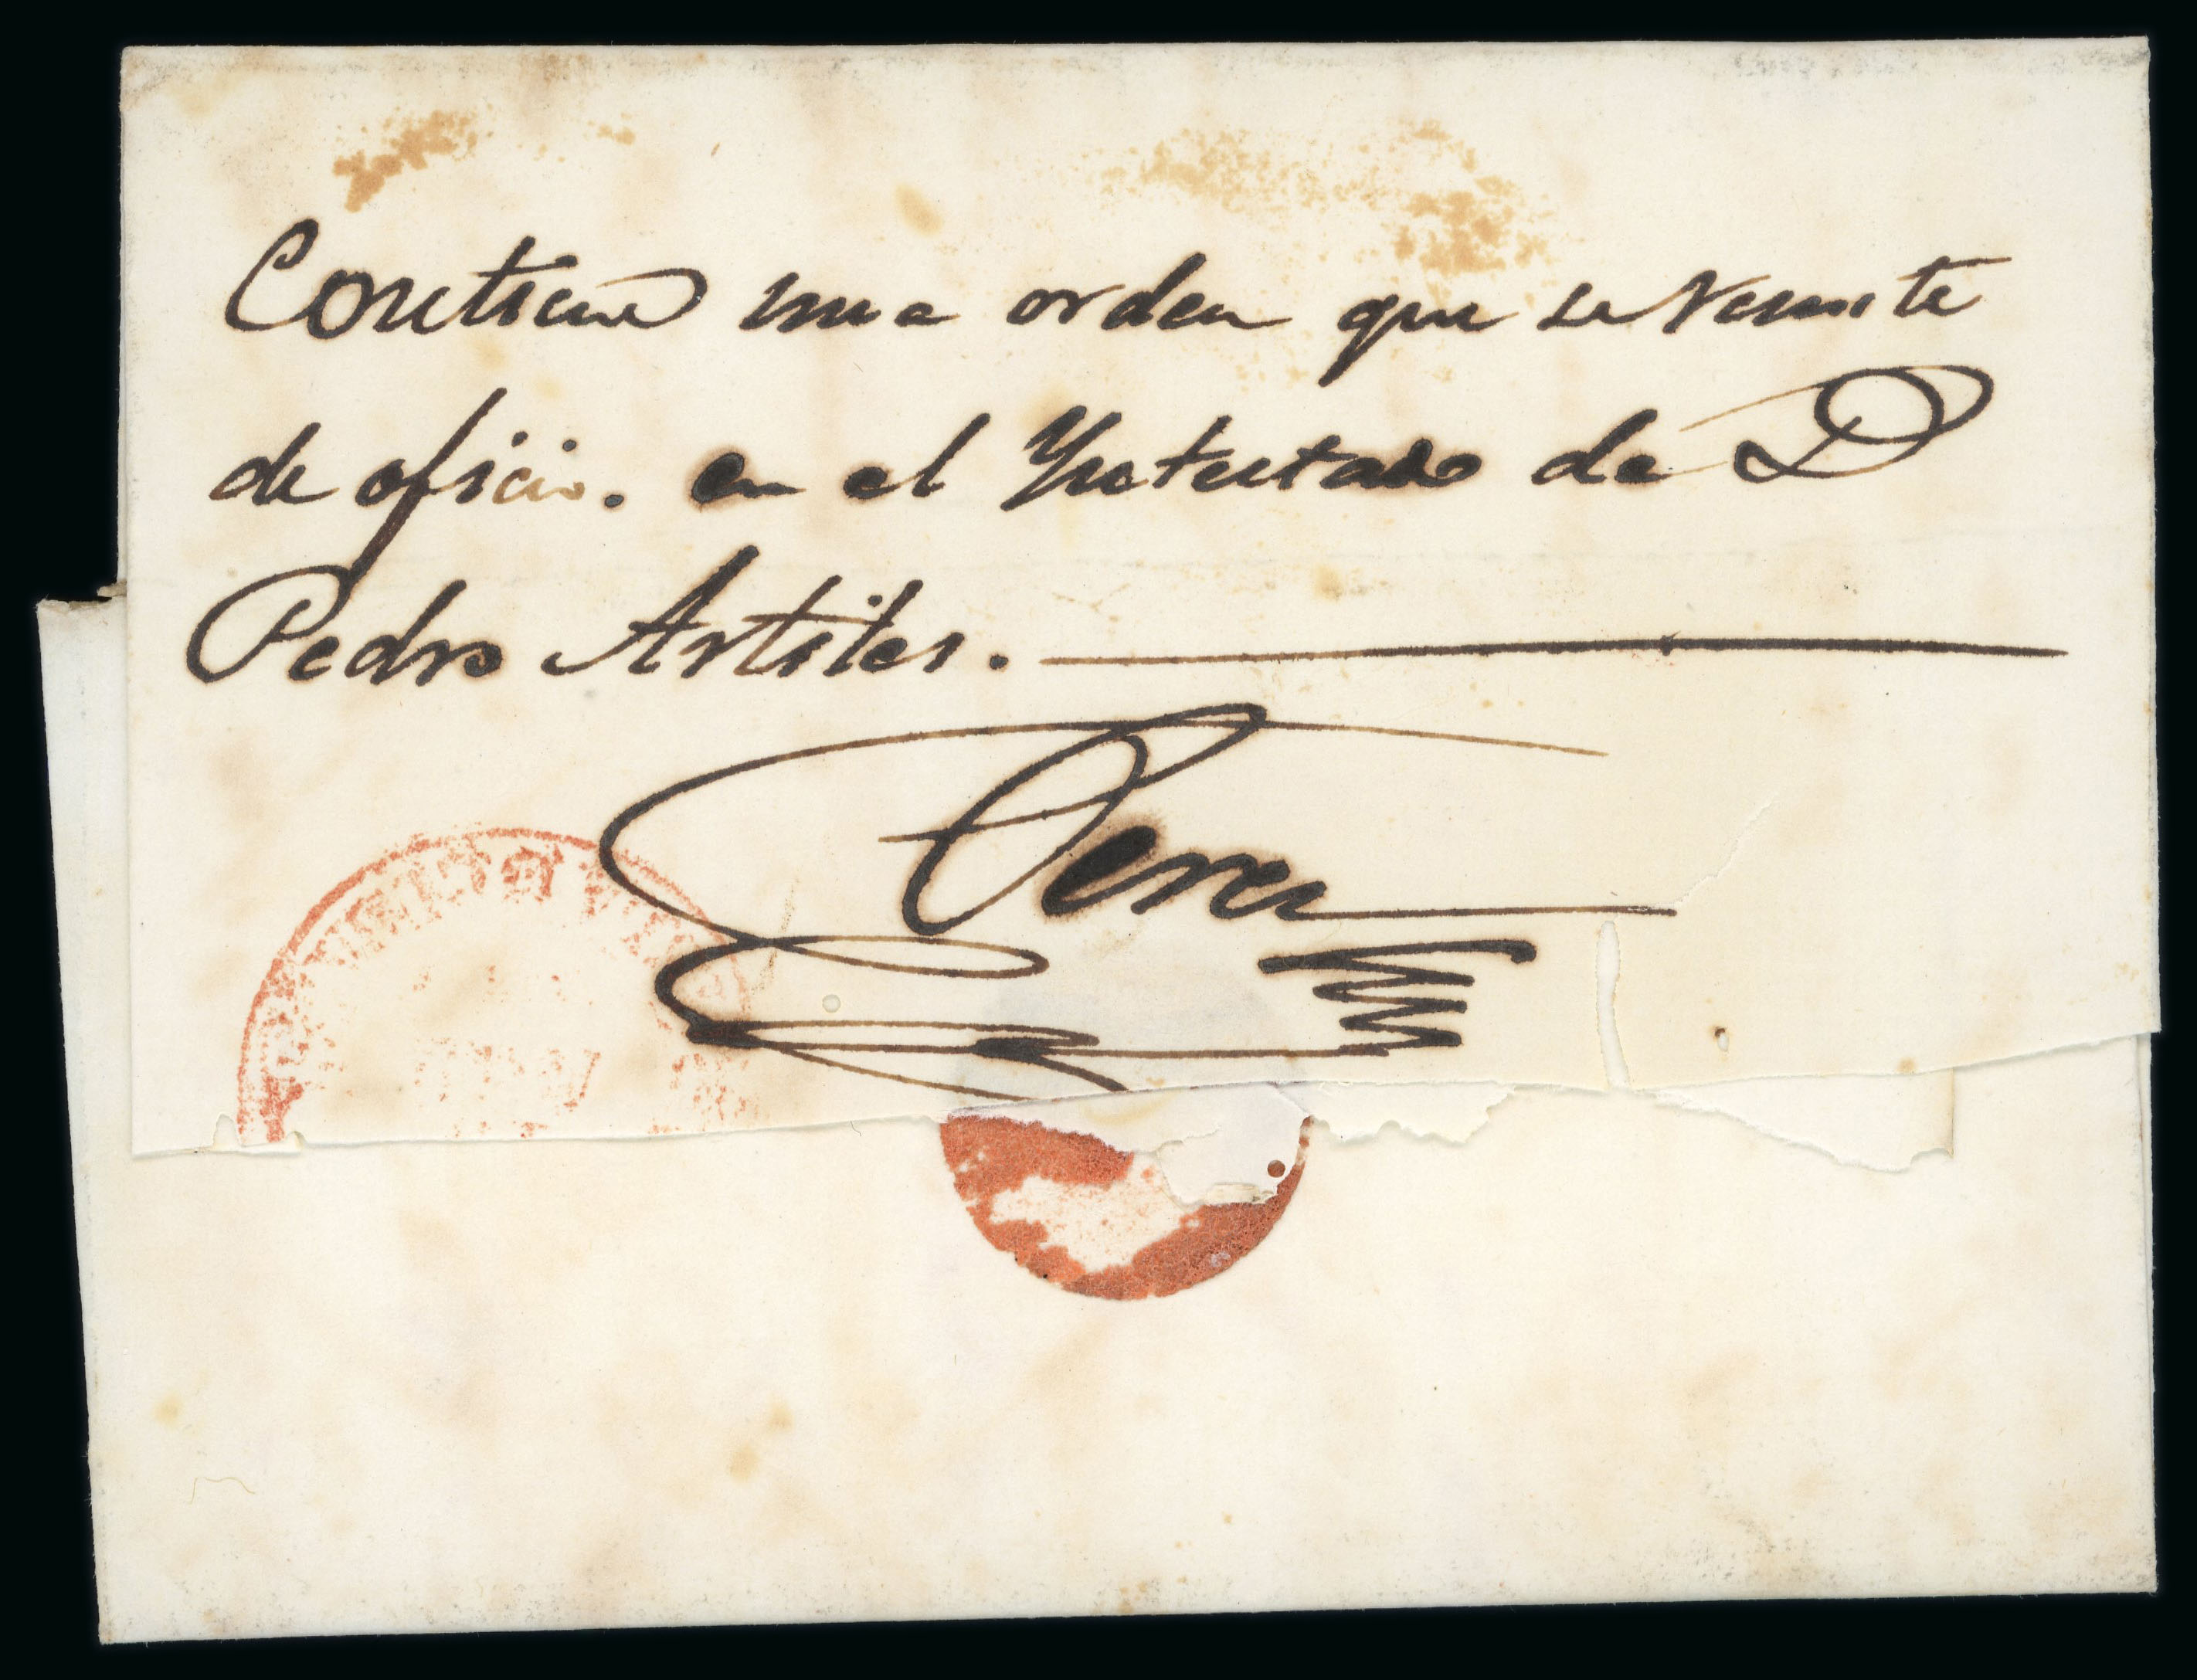 Contiene una orden que se remite
de oficio. en el Yntestado de D
Pedro Artiles.
Perez